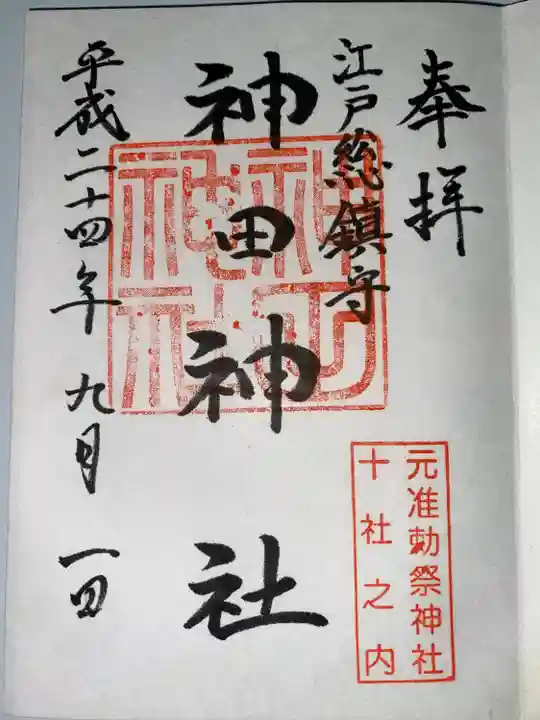 奉拝
江戸総鎮守
神田神社
平成二十四年 九月 一日
元准勅祭神社
十社之内